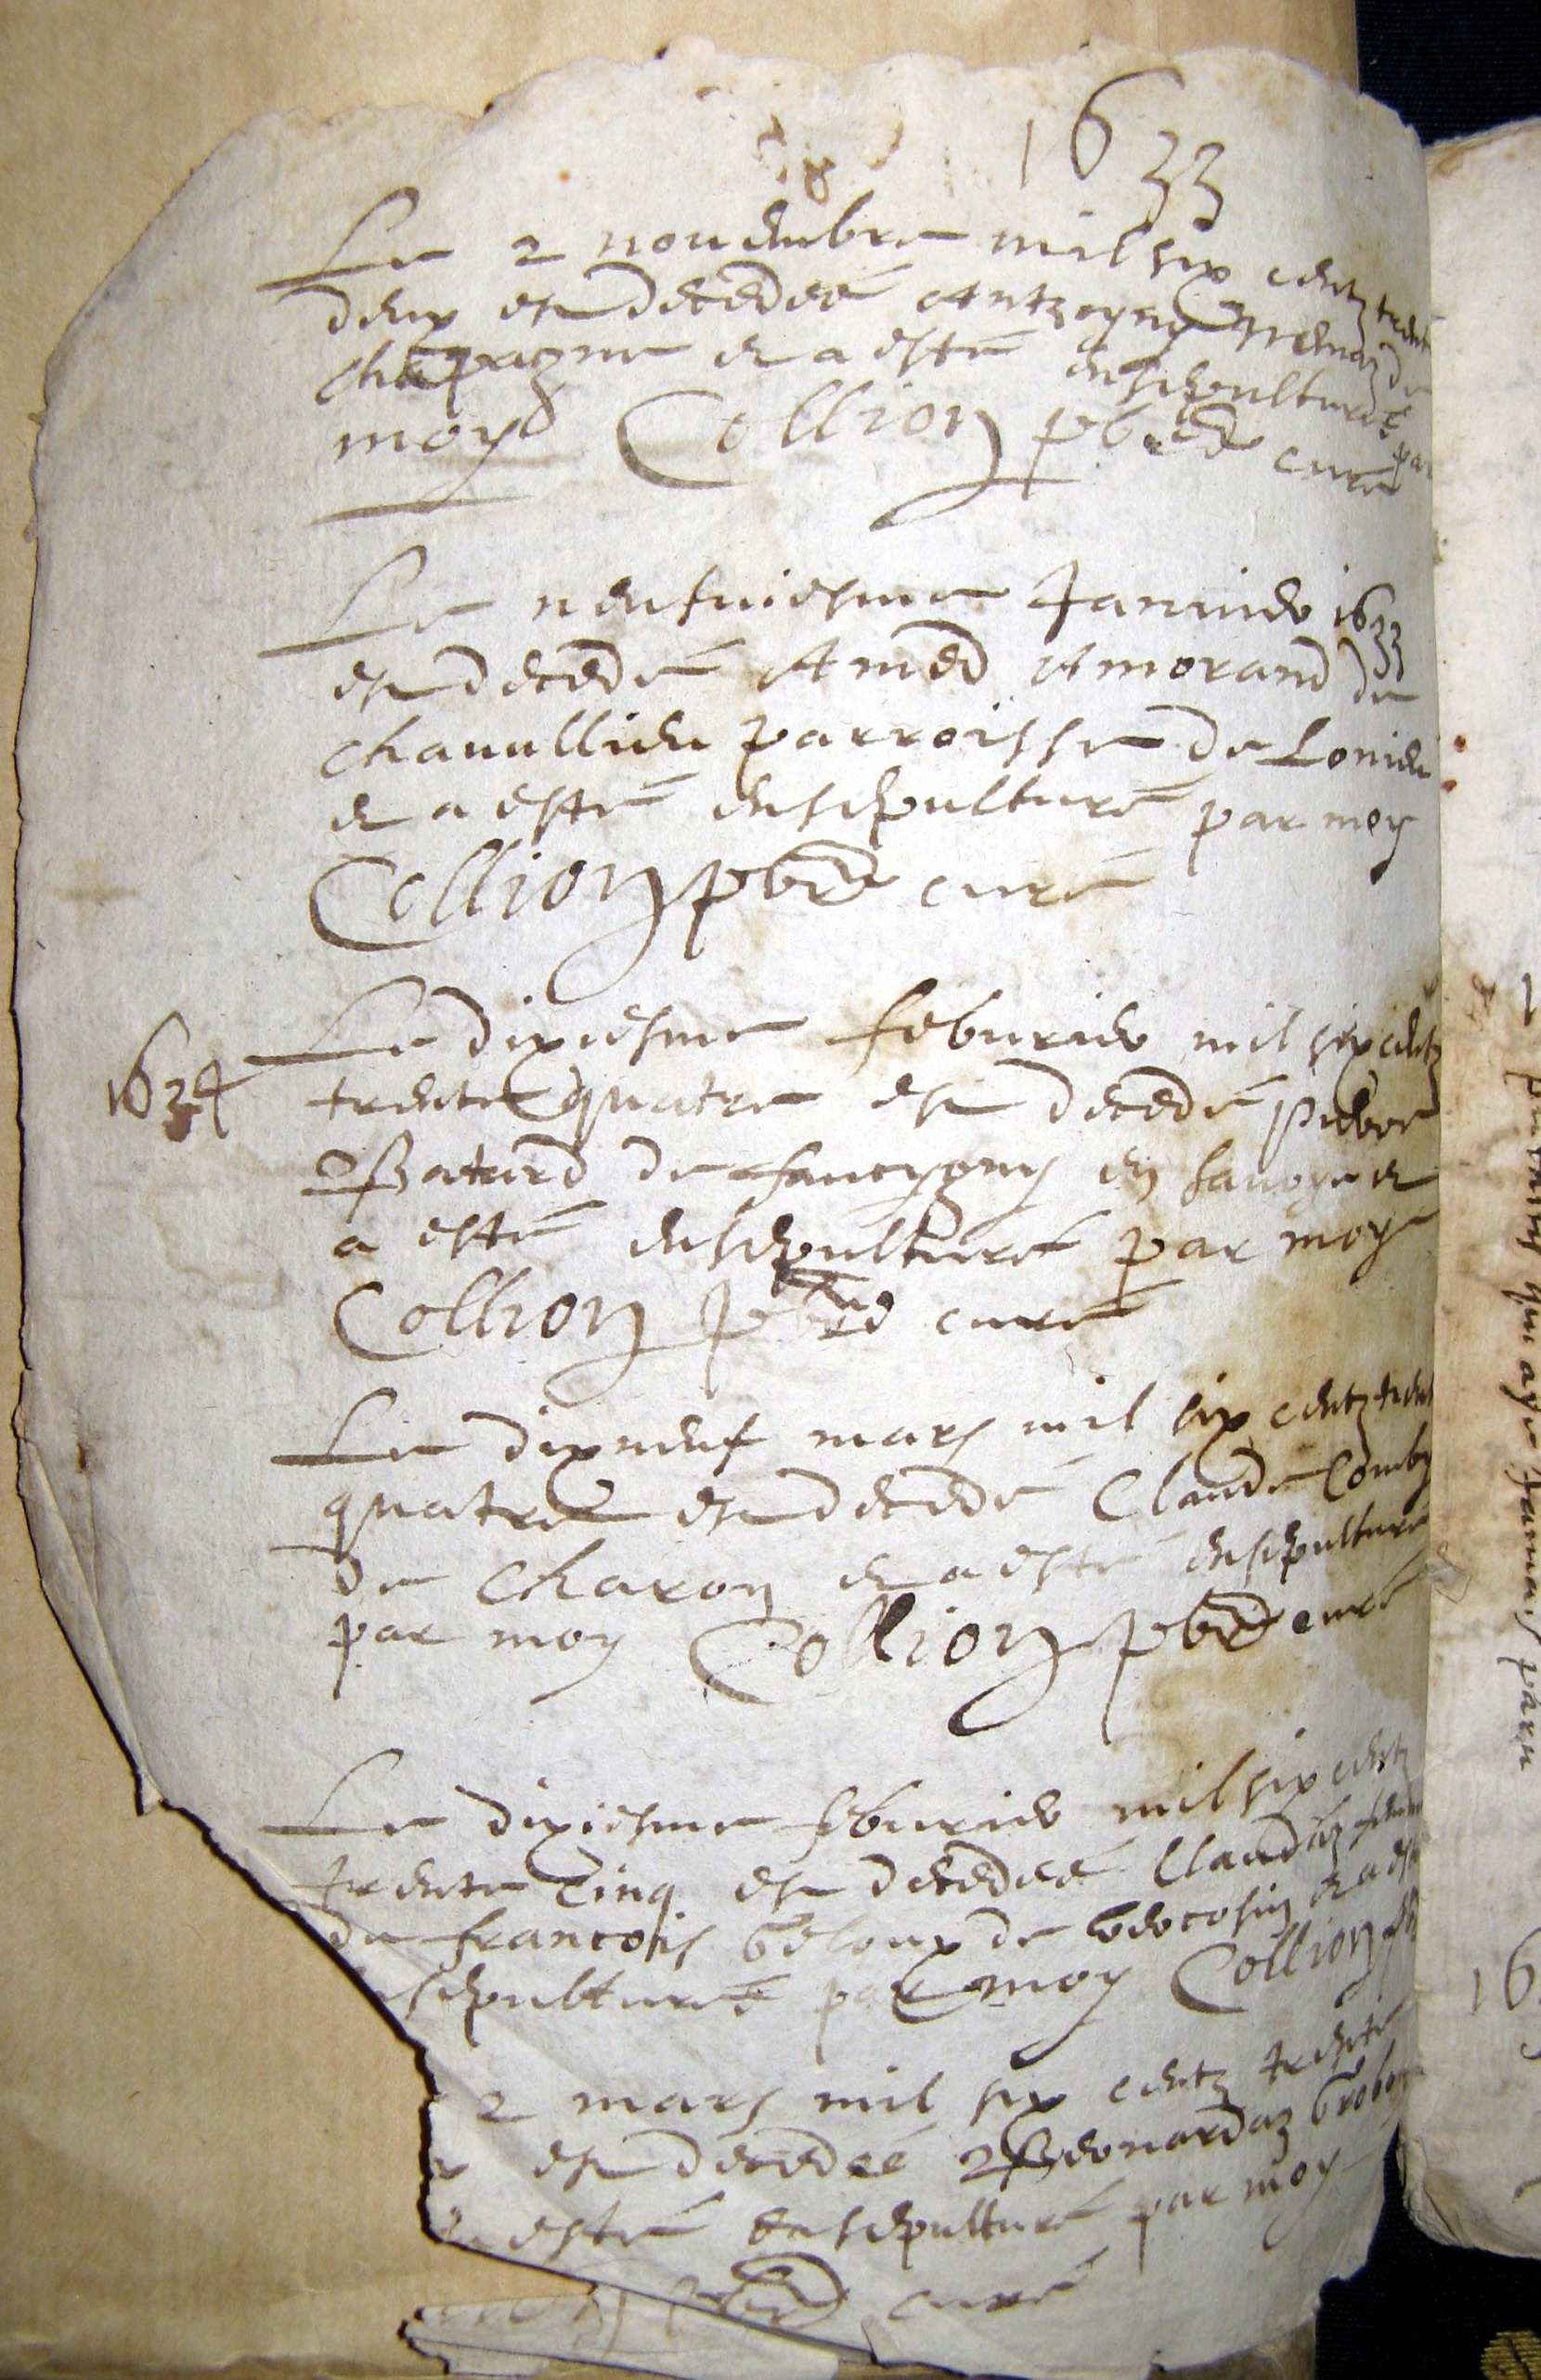 1633
Le 2 nouembre mil six centz trente
deux est decedeé Antzoyne
Chapagne et a esté ensepultureé par
moy Collion pbre curé
Le neufuiesme Januier 1633
est decedé Amed Amorand de
chauullieu parroisse de Lonieu
et a esté ensepulturé par moy
Collion pbre curé
1634
Le dixiesme feburier mil six centz
trente quatre est decedé pierre
Batard de faucygny en sauoye et
a esté ensepulturé par moy
Collion pbre curé
Le dixneuf mars mil six centz trent
quatre est decedé Claude Comby
de Charon et a esté ensepulturé
par moy Collion pbre curé
Le dixiesme feburier mil six centz
trente cinq est decedeé Claudaz
du francois beloux de et a est
sepulturé par moy Collion pb
2 mars mil six centz trente
est decedeé Bernardaz
esté ensepulturé par moy
pbre curé
16